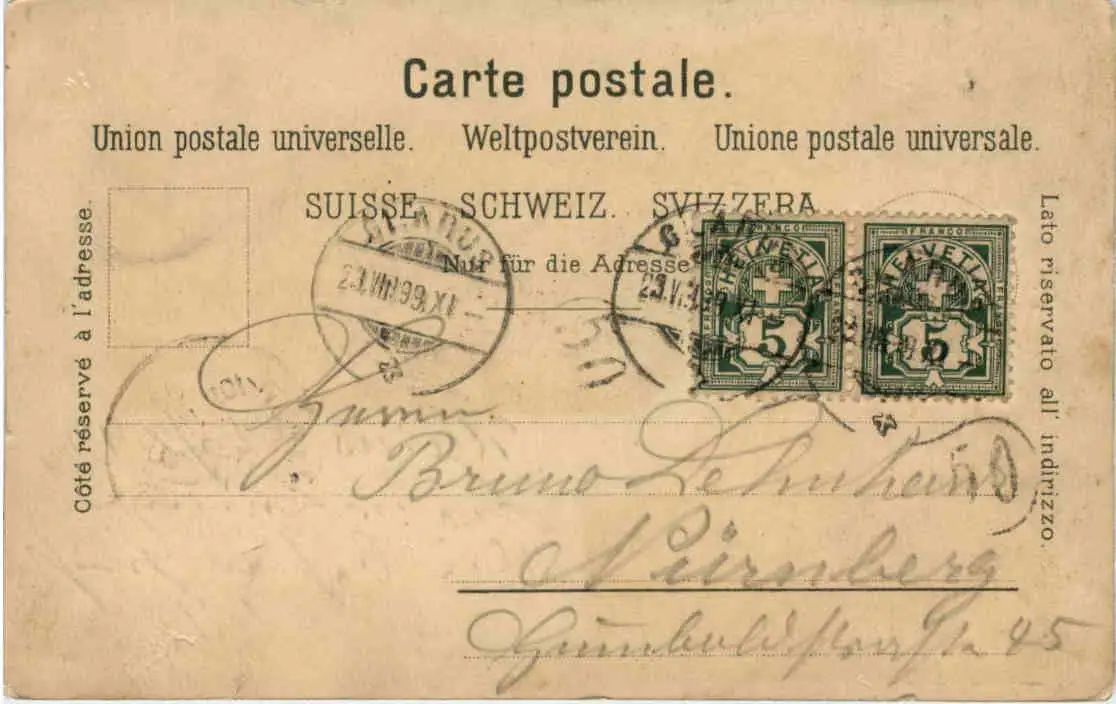 Carte postale.
Union postale universelle. Weltpostverein. Unione postale universale.
SUISSE. SCHWEIZ. SVIZZERA.
Nur für die Adresse
Côté réservé à l'adresse.
Lato riservato all' indirizzo.
GLARUS
FRANCO
HELVETIA
5
FRANCO
HELVETIA
5
Herrn
Bruno
Nürnberg
Humboldstraße 45